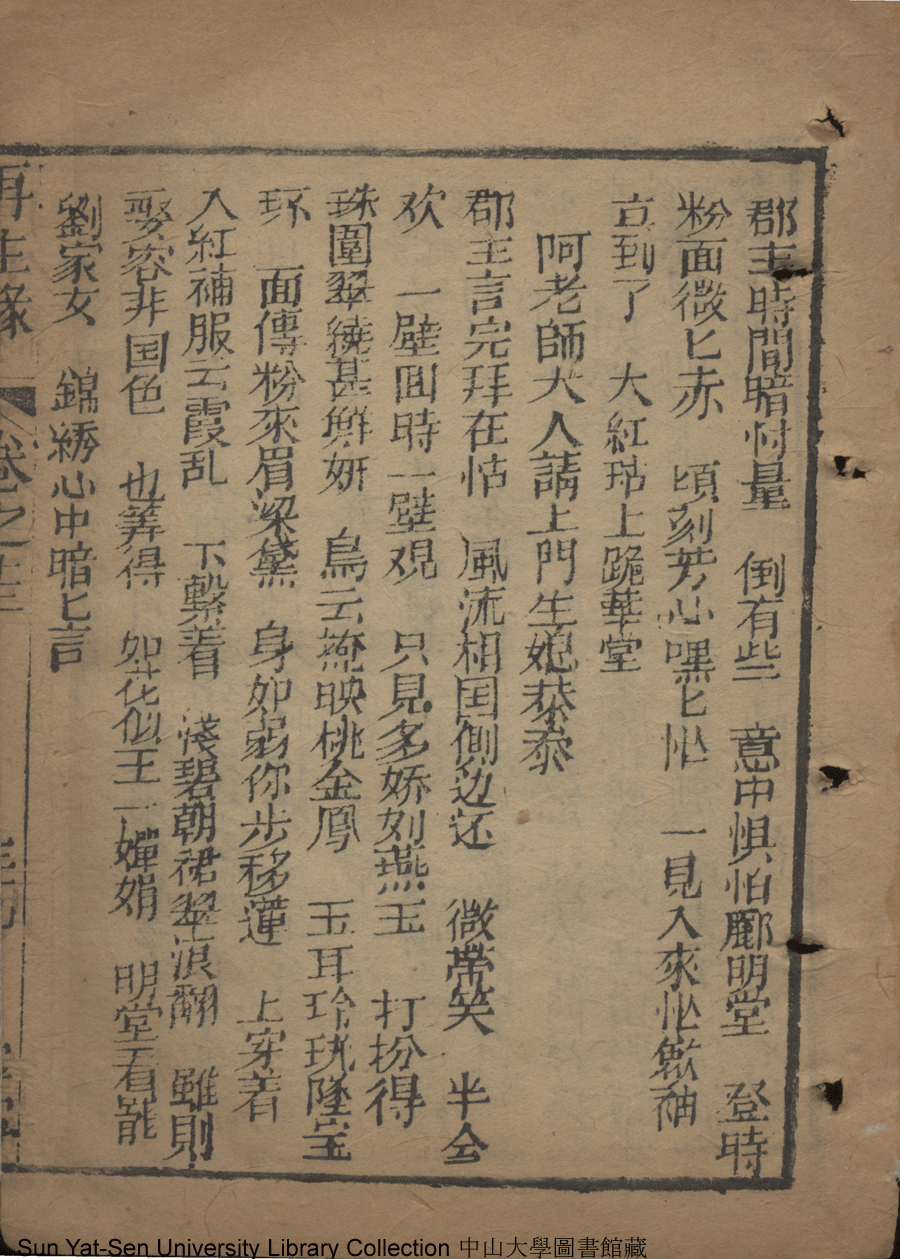 郡主時間暗忖量　倒有些　意中惧怕酈明堂　登時
粉面微匕赤　頃刻芳心嘿匕忙　一見入來忙斂袖
立到了　大紅毡上跪華堂
阿老師大人請上門生媳恭泰
郡主言完拜在毡　風流相国側边还　微帶笑　半含
欢　一壁回時一壁观　只見多娇刘燕玉　打扮得
珠圍翠繞甚鮮妍　烏云掩映桃金鳳　玉耳玲珑墜宝
环　面傳粉來眉梁黛　身如弱你步移蓮　上穿着
入紅補服云霞乱　下繫着　淺碧朝裙翠浪翻　雖則
娶容非国色　也筭得　如花似王一嬋娟　明堂看罷
劉家女　錦綉心中暗匕言
再生緣　卷之十三
Sun Yat-Sen University Library Collection 中山大學圖書館藏